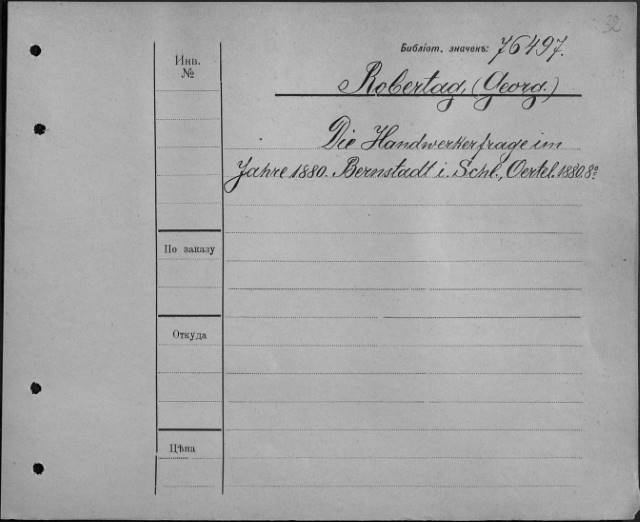 32
Библіот. значекъ: 76497.
Инв.
№
Robertag, (Georg.)
Die Handwerkerfrage im
Jahre 1880. Bernstadt i. Schl., Oertel. 1880. 8º
По заказу
Откуда
Цѣна